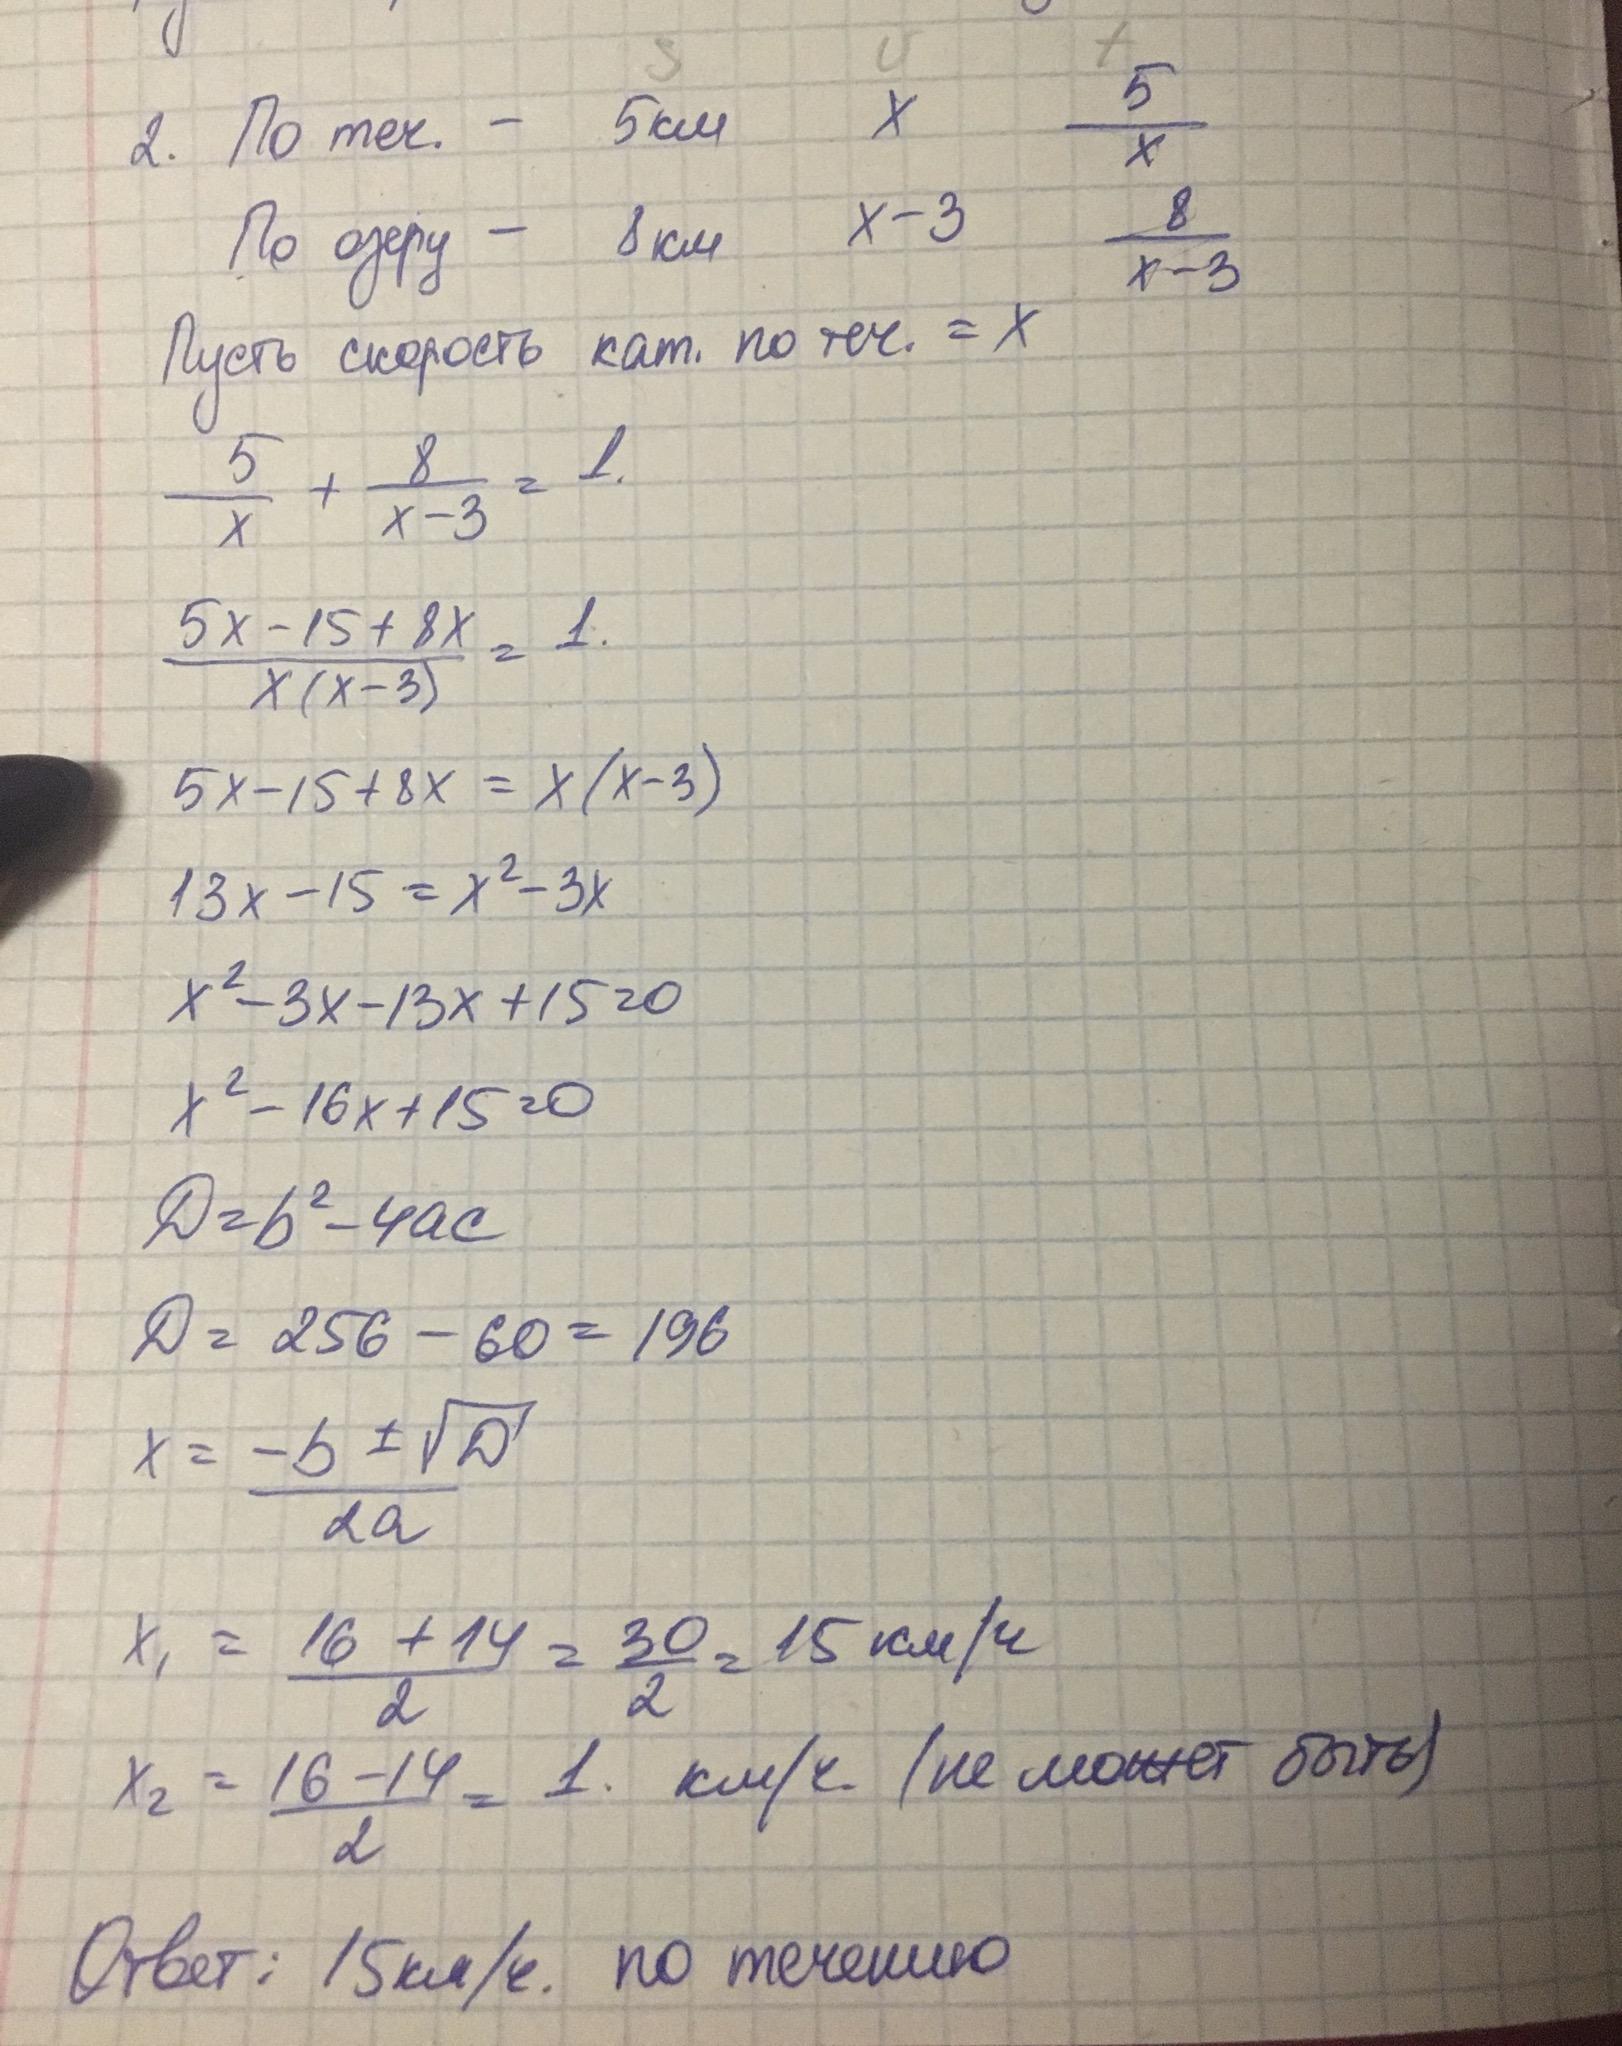 S v t
2. По теч. – 5км x 5/x
По озеру – 8км x-3 8/(x-3)
Пусть скорость кат. по теч. = x
5/x + 8/(x-3) = 1.
(5x-15+8x)/(x(x-3)) = 1.
5x-15+8x = x(x-3)
13x-15 = x²-3x
x²-3x-13x+15=0
x²-16x+15=0
D=b²-4ac
D= 256-60=196
x = (-b ± √D)/2a
x₁ = (16+14)/2 = 30/2 = 15 км/ч
x₂ = (16-14)/2 = 1. км/ч. (не может быть)
Ответ: 15км/ч. по течению